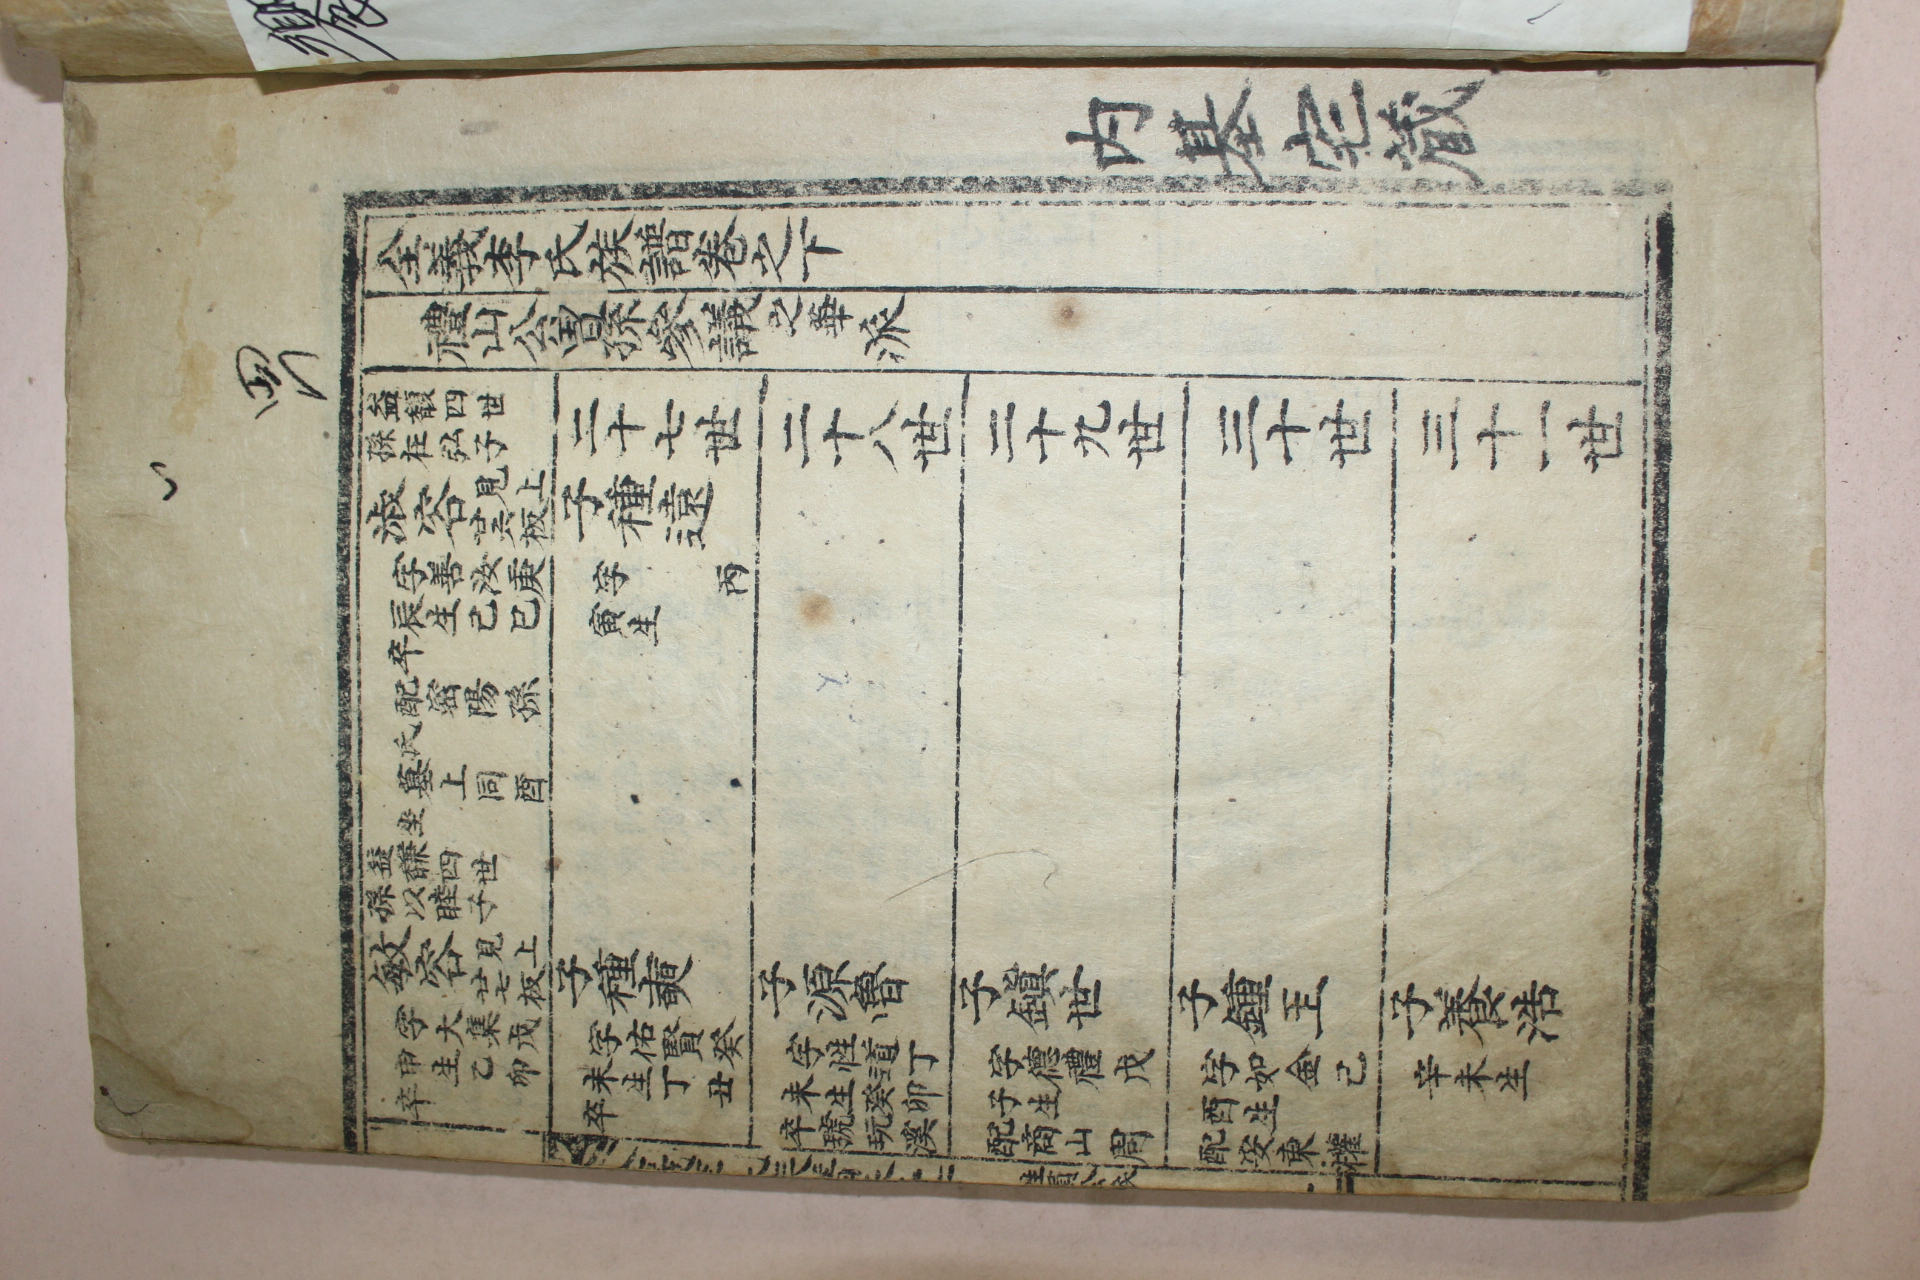 内基宅藏
全義李氏族譜卷之下
禮山公曾孫參議之華派
益馥四世
孫柱弘子
二十七世
二十八世
二十九世
三十世
三十一世
淑容
見上
廿五板
字善汝庚
辰生己巳
卒
配密陽孫
氏
墓上同酉
坐
子種遠
字 丙
寅生
益謙四世
孫以睦子
敏容
見上
廿七板
字大集戊
申生乙卯
卒
子種奭
字佑賢癸
未生丁丑
卒
子源魯
字性道丁
未生癸卯
卒
號玩溪
子鎭世
字德禮戊
子生
配商山周
子鍾玉
字如金己
酉生
配安東權
子養浩
辛未生